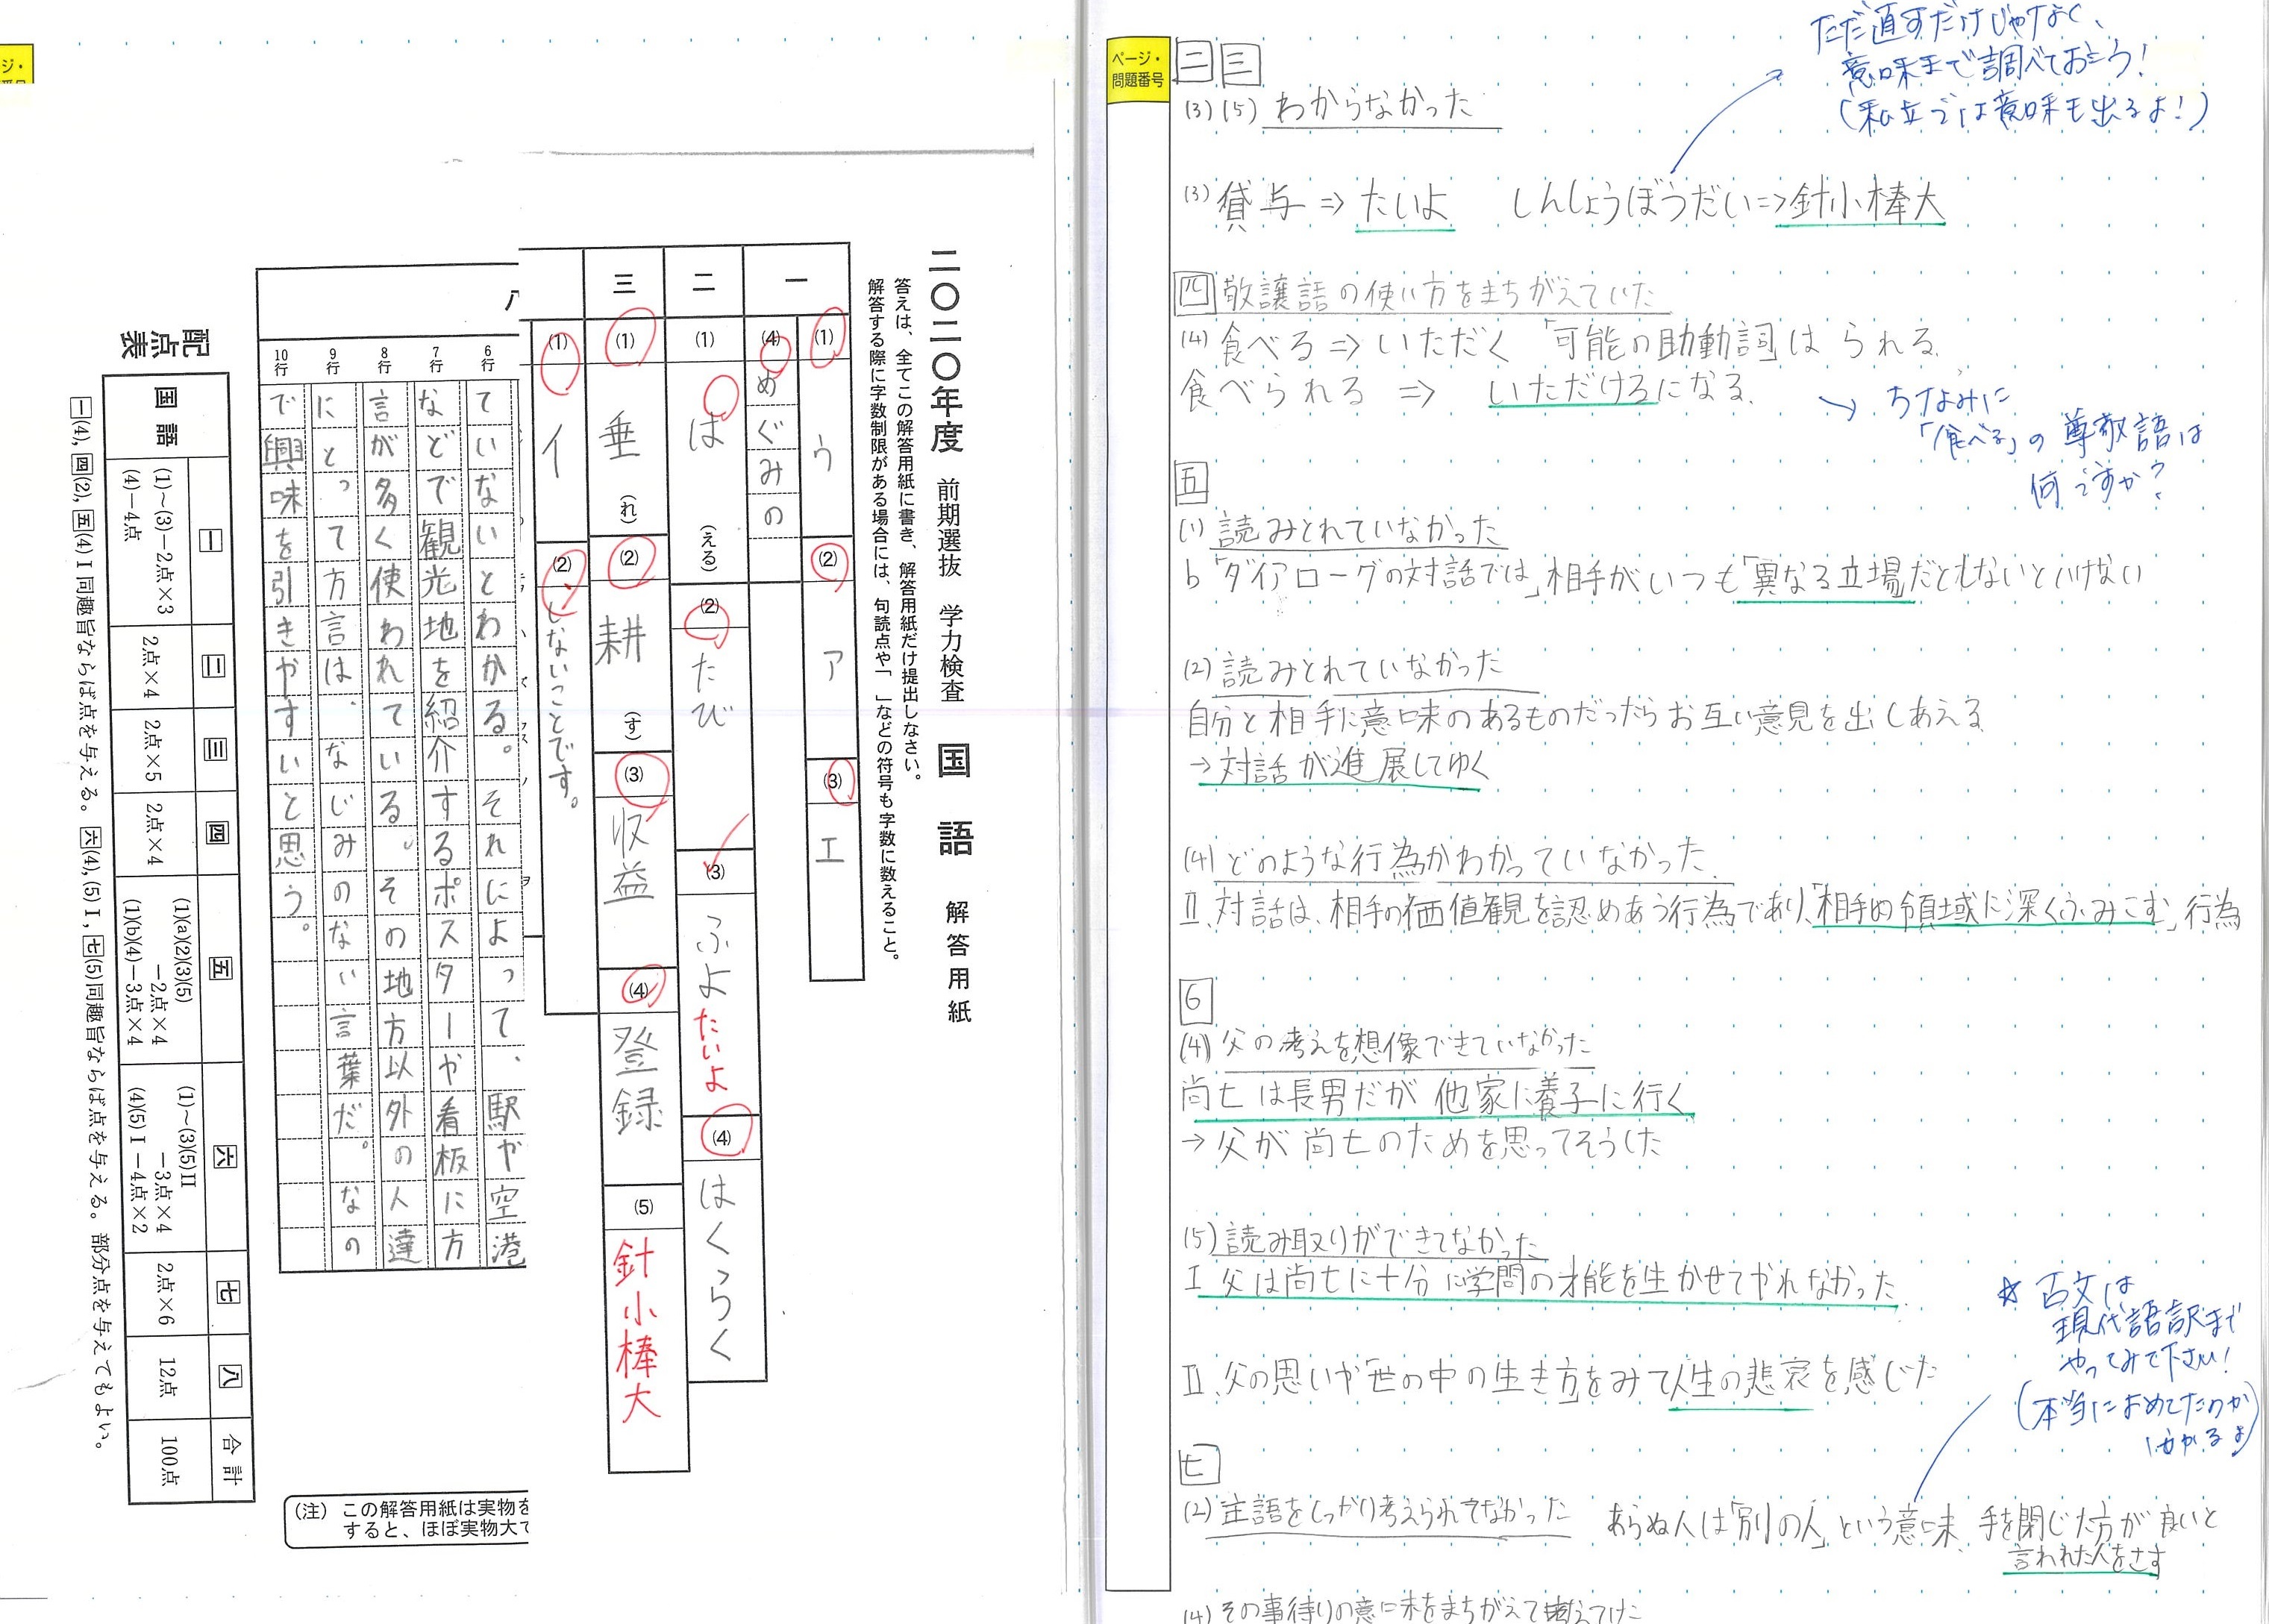 二〇二〇年度 前期選抜 学力検査 国語 解答用紙
答えは、全てこの解答用紙に書き、解答用紙だけ提出しなさい。
解答する際に字数制限がある場合には、句読点や「 」などの符号も字数に数えること。
一
(1) ウ
(2) ア
(3) エ
(4) めぐみの
二
(1) は (える)
(2) たび
(3) ふよ たいよ
(4) はくらく
三
(1) 垂 (れ)
(2) 耕 (す)
(3) 収益
(4) 登録
(5) 針小棒大
(1) イ
(2) しないことです。
八
6行 ていないとわかる。それによって、駅や空港
7行 などで観光地を紹介するポスターや看板に方
8行 言が多く使われている。その地方以外の人達
9行 にとって方言は、なじみのない言葉だ。なの
10行 で興味を引きやすいと思う。
配点表
国語
一 (1)〜(3)−2点×3
(4)−4点
二 2点×4
三 2点×5
四 2点×4
五 (1)(a)(2)(3)(5)
−2点×4
(1)(b)(4)−3点×4
六 (1)〜(3)(5)II
−3点×4
(4)(5)I−4点×2
七 2点×6
八 12点
合計 100点
一(4), 四(2), 五(4)I 同趣旨ならば点を与える。六(4), (5)I, 七(5)同趣旨ならば点を与える。部分点を与えてもよい。
(注) この解答用紙は実物を
すると、ほぼ実物大で
ページ・
問題番号
二 三
(3)(5) わからなかった
ただ直すだけじゃなく、
意味まで調べておこう!
(私立では意味も出るよ!)
(3) 貸与⇒たいよ しんしょうぼうだい⇒針小棒大
四 敬譲語の使い方をまちがえていた
(4) 食べる⇒いただく 「可能の助動詞」は られる
食べられる ⇒ いただけるになる
ちなみに
「食べる」の尊敬語は
何ですか?
五
(1) 読みとれていなかった
b 「ダイアローグの対話では」相手がいつも「異なる立場」だともないといけない
(2) 読みとれていなかった
自分と相手に意味のあるものだったらお互い意見を出しあえる
→対話が進展してゆく
(4) どのような行為かわかっていなかった
II、対話は、相手の価値観を認めあう行為であり、「相手の領域に深くふみこむ」行為
6
(4) 父の考えを想像できていなかった
尚七は長男だが他家に養子に行く
→父が尚七のためを思ってそうした
(5) 読み取りができてなかった
I 父は尚七に十分に学問の才能を生かせてやれなかった
II、父の思いや「世の中の生き方」をみて人生の悲哀を感じた
☆古文は
現代語訳まで
やってみて下さい!
(本当におめでたいのか
分かるよ)
七
(2) 主語をしっかり考えられてなかった あらぬ人は「別の人」という意味、手を閉じた方が良いと
言われた人をさす
(4) その事待りの意味をまちがえて考えてた